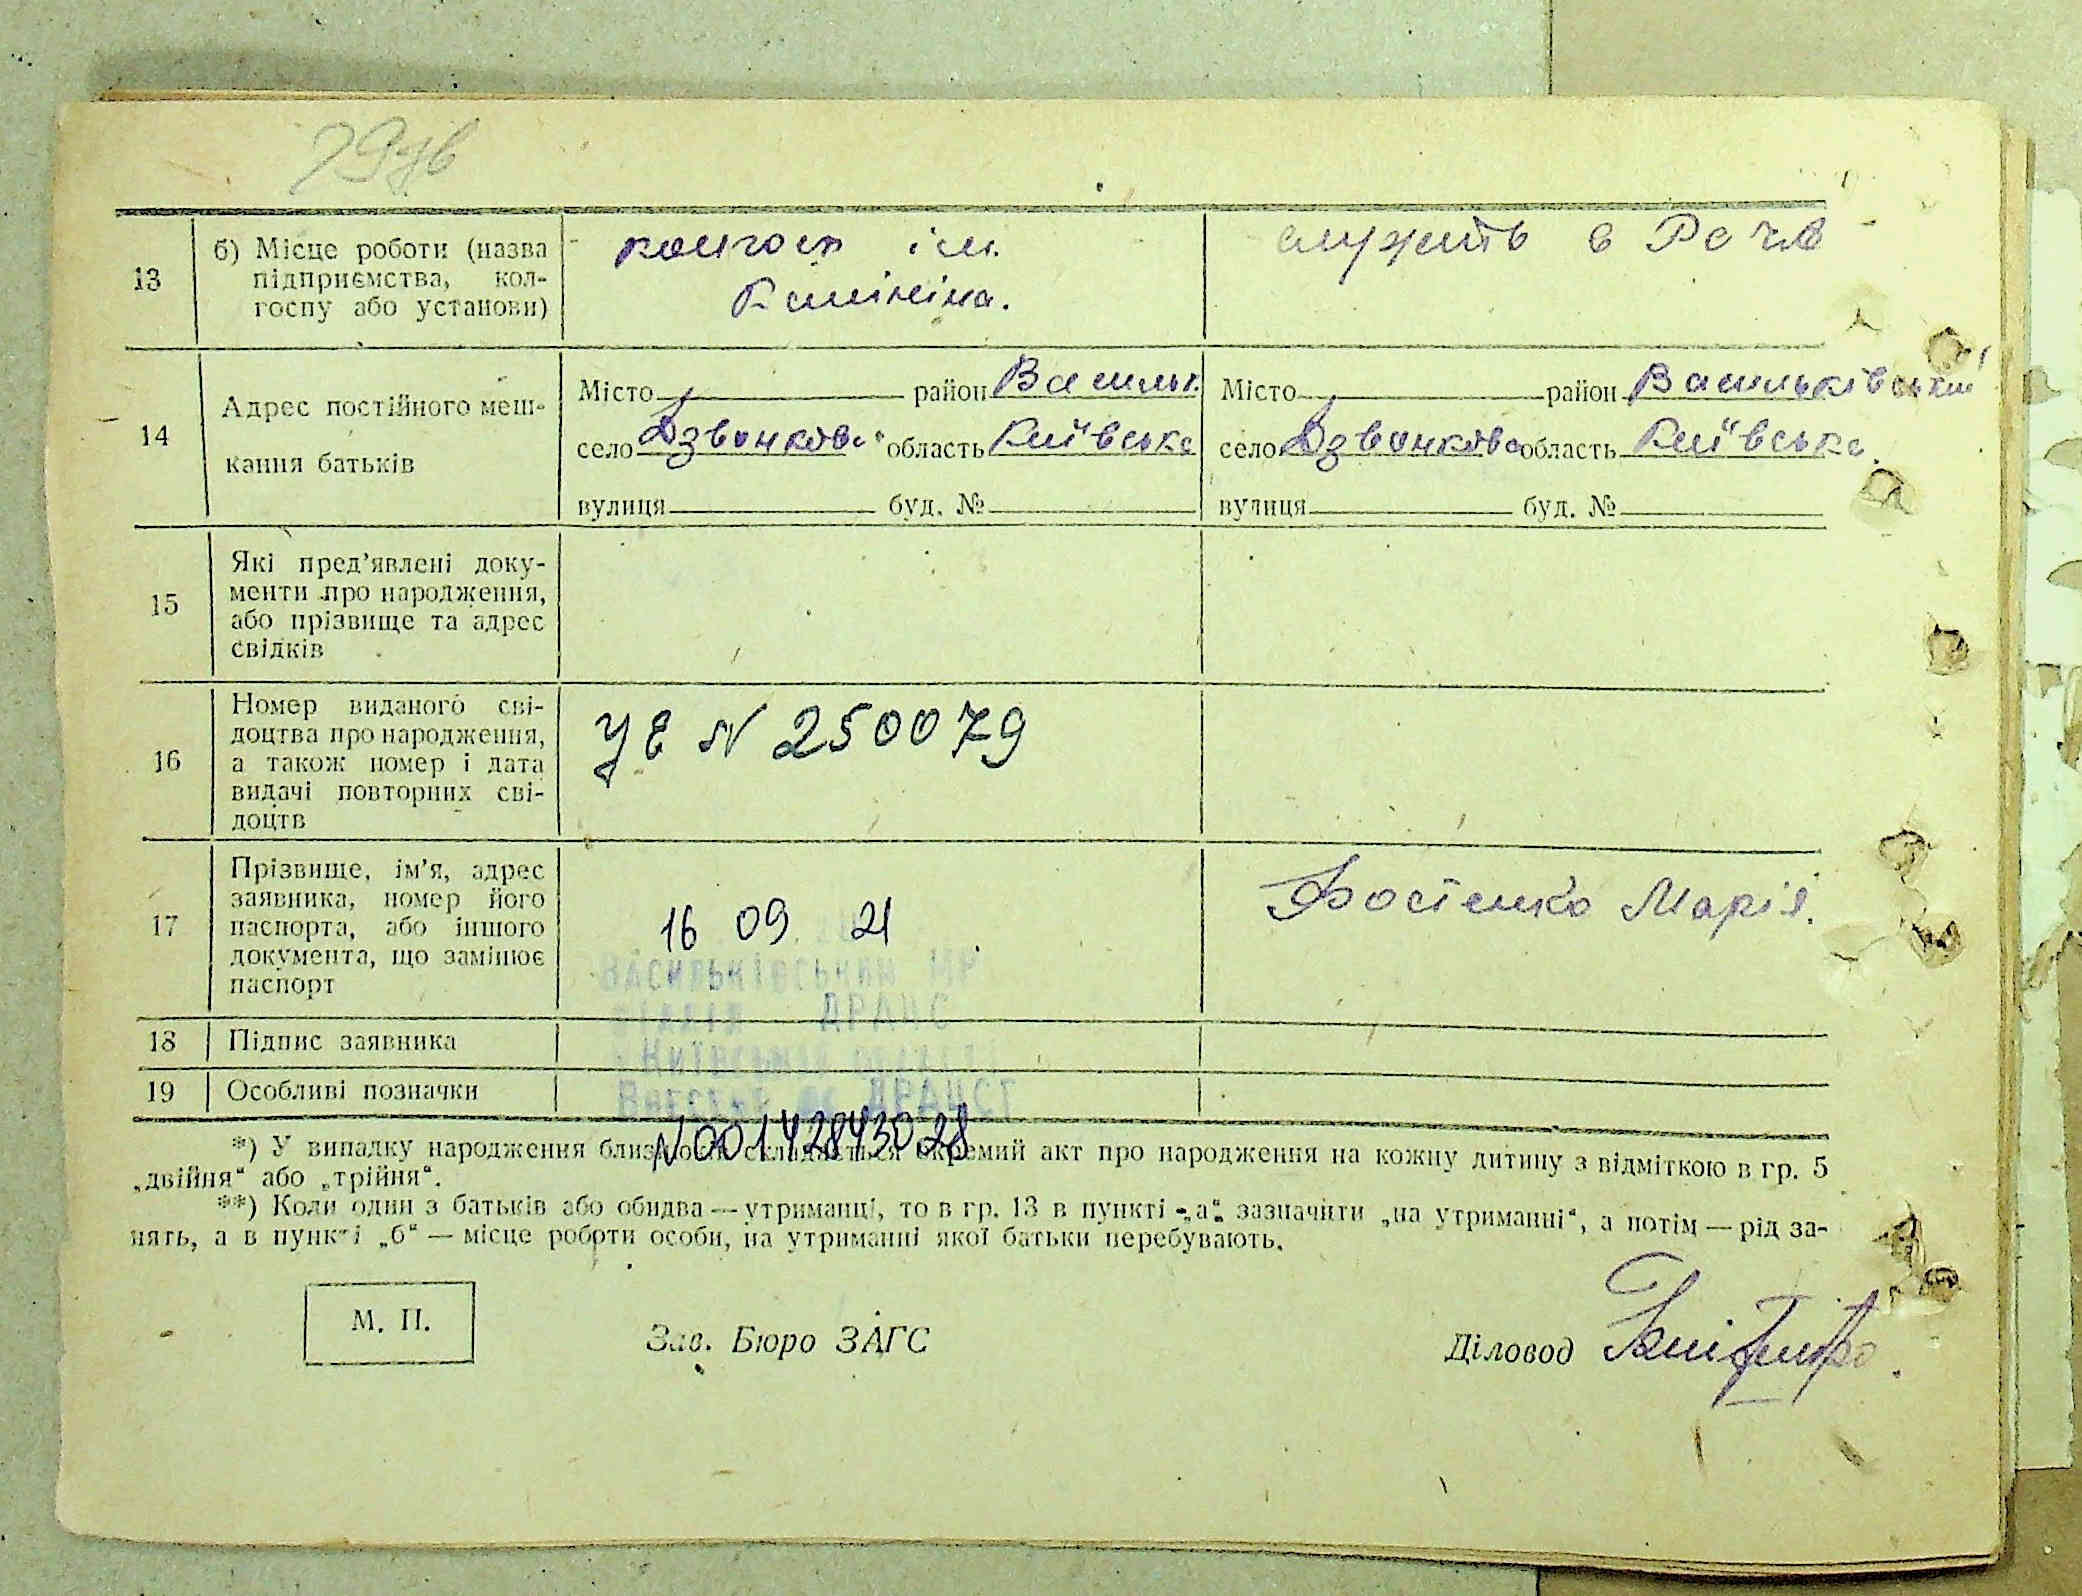 79зв
13
б) Місце роботи (назва
підприємства, кол-
госпу або установи)
колгосп ім.
Калініна.
служить в РСЧА
14
Адрес постійного меш-
кання батьків
Місто район Васильк
село Дзвонкова область Київська
вулиця буд. №
Місто район Васильківський
село Дзвонкова область Київська.
вулиця буд. №
15
Які пред’явлені доку-
менти про народження,
або прізвище та адрес
свідків
16
Номер виданого сві-
доцтва про народження,
а також номер і дата
видачі повторних сві-
доцтв
УЕ N 250079
17
Прізвище, ім’я, адрес
заявника, номер його
паспорта, або іншого
документа, що замінює
паспорт
16 09 21
Васильківський МР
відділ ДРАЦС
Київській області
Внесено до ДРАЦСГ
N00142843028
Фостенко Марія.
18
Підпис заявника
19
Особливі позначки
*) У випадку народження близнюків складається окремий акт про народження на кожну дитину з відміткою в гр. 5
„двійня“ або „трійня“.
**) Коли один з батьків або обидва — утриманці, то в гр. 13 в пункті „а“ зазначити „на утриманні“, а потім — рід за-
нять, а в пункті „б“ — місце роботи особи, на утриманні якої батьки перебувають.
М. П.
Зав. Бюро ЗАГС
Діловод